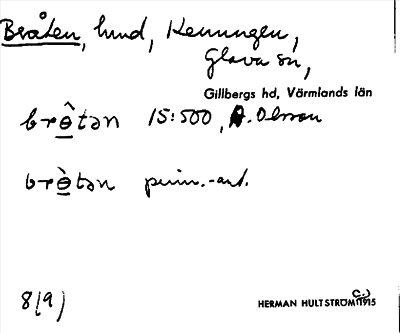 Bråten, lund, Kenungen,
Glava sn,
Gillbergs hd, Värmlands län
brɵ̂tən 15:500, A. Olsson
brɵ̀tən prim.-ant.
8(9)
HERMAN HULTSTRÖM (C.) 1915